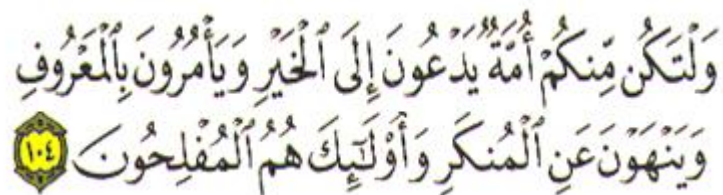 وَلْتَكُن مِّنكُمْ أُمَّةٌ يَدْعُونَ إِلَى ٱلْخَيْرِ وَيَأْمُرُونَ بِٱلْمَعْرُوفِ
وَيَنْهَوْنَ عَنِ ٱلْمُنكَرِ وَأُو۟لَٰٓئِكَ هُمُ ٱلْمُفْلِحُونَ ١٠٤